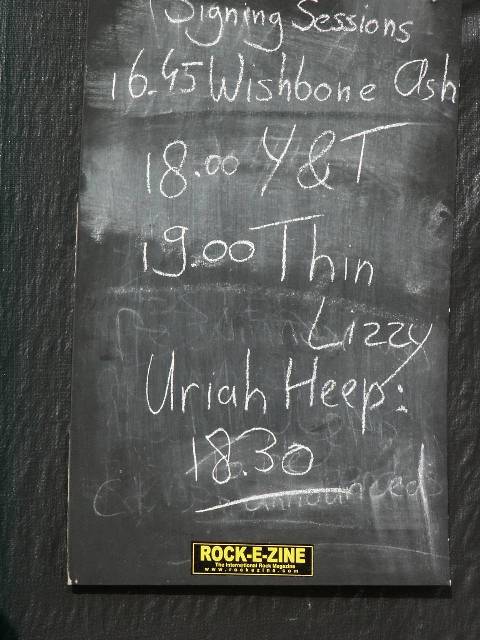 Signing Sessions
16.45 Wishbone Ash
18.00 Y&T
19.00 Thin
Lizzy
Uriah Heep:
18.30
announced
ROCK-E-ZINE
The International Rock Magazine
www.rockezine.com